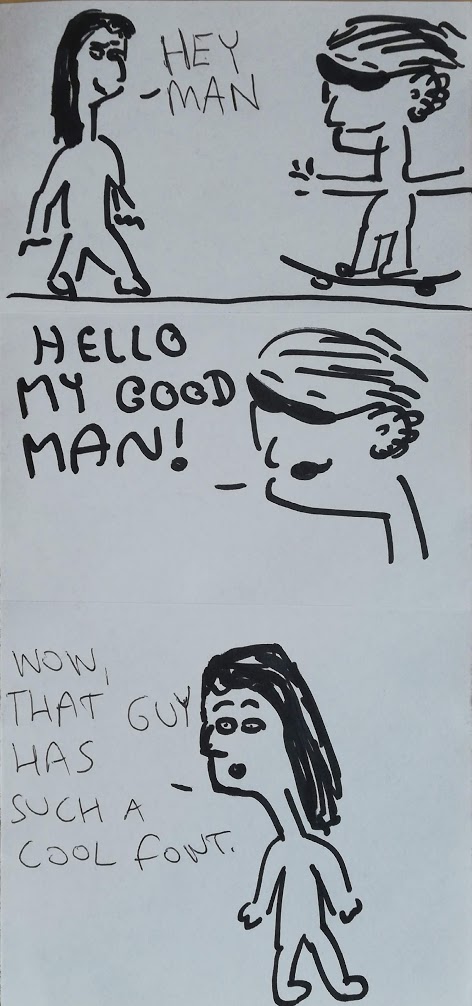 HEY
MAN
HELLO
MY GOOD
MAN!
WOW,
THAT GUY
HAS
SUCH A
COOL FONT.